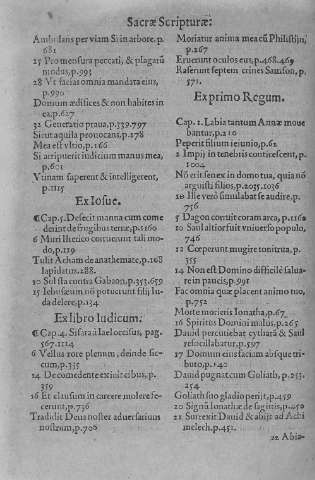 Sacræ Scripturæ:
Ambulans per viam Si in arbore. p.
681
25 Pro mensura peccati, & plagarũ
modus, p.993
28 Vt facias omnia mandata eius,
p.990
Domum ædifices & non habites in
ea, p.627
32 Generatio praua, p.339.797
Sicut aquila prouocans, p.278
Mea est vltio, p.166
Si arripuerit iudicium manus mea,
p.601
Vtinam saperent & intelligerent,
p.1115
Ex Iosue.
¶Cap.5. Defecit manna cum come
derint de frugibus terræ, p.1160
6 Muri Ilierico corruunt tali mo-
do, p.119
Tulit Acham de anathemate, p.168
lapidatur. 288.
10 Sol sta contra Gabaon, p.353.659
15 Iebusæum nõ potuerunt filij Iu
da delere, p.134.
Ex libro Iudicum.
¶Cap.4. Sisara à Iaele occisus, pag.
567.1114
6 Vellus rore plenum, deinde sic-
cum, p.335
14 De comedente exiuit cibus, p.
359
16 Et clausum in carcere molere fe-
cerunt, p.736
Tradidit Deus noster aduersarium
nostrum, p.700
Moriatur anima mea cũ Philistijm,
p.267
Eruerunt oculos eius, p.468.469
Raserunt septem crines Samson, p.
571.
Ex primo Regum.
Cap. 1. Labia tantum Annæ moue
bantur, p.210
Peperit filium ieiunio, p.62
2 Impij in tenebris conticescent, p.
1004
Nõ est senex in domo tua, quia nõ
arguisti filios, p.205.1036
10 Ille verò simulabat se audire, p.
756
5 Dagon corruit coram arca, p.1162
10 Saul altior fuit vniuerso populo,
746
12 Cœperunt mugire tonitrua, p.
355
14 Non est Domino difficile salua-
re in paucis, p.991
Fac omnia quæ placent animo tuo,
p.752
Morte morieris Ionatha, p.67
16 Spiritus Domini malus, p.265
Dauid percutiebat cythara & Saul
refocillabatur, p.597
17 Domum eius faciam absque tri-
buto, p.140
Dauid pugnat cum Goliath, p.253.
254
Goliath suo gladio perijt, p.459
20 Signũ Ionathæ de sagittis, p.450
21 Surrexit Dauid & abijt ad Achi
melech, p.451.
22 Abia-